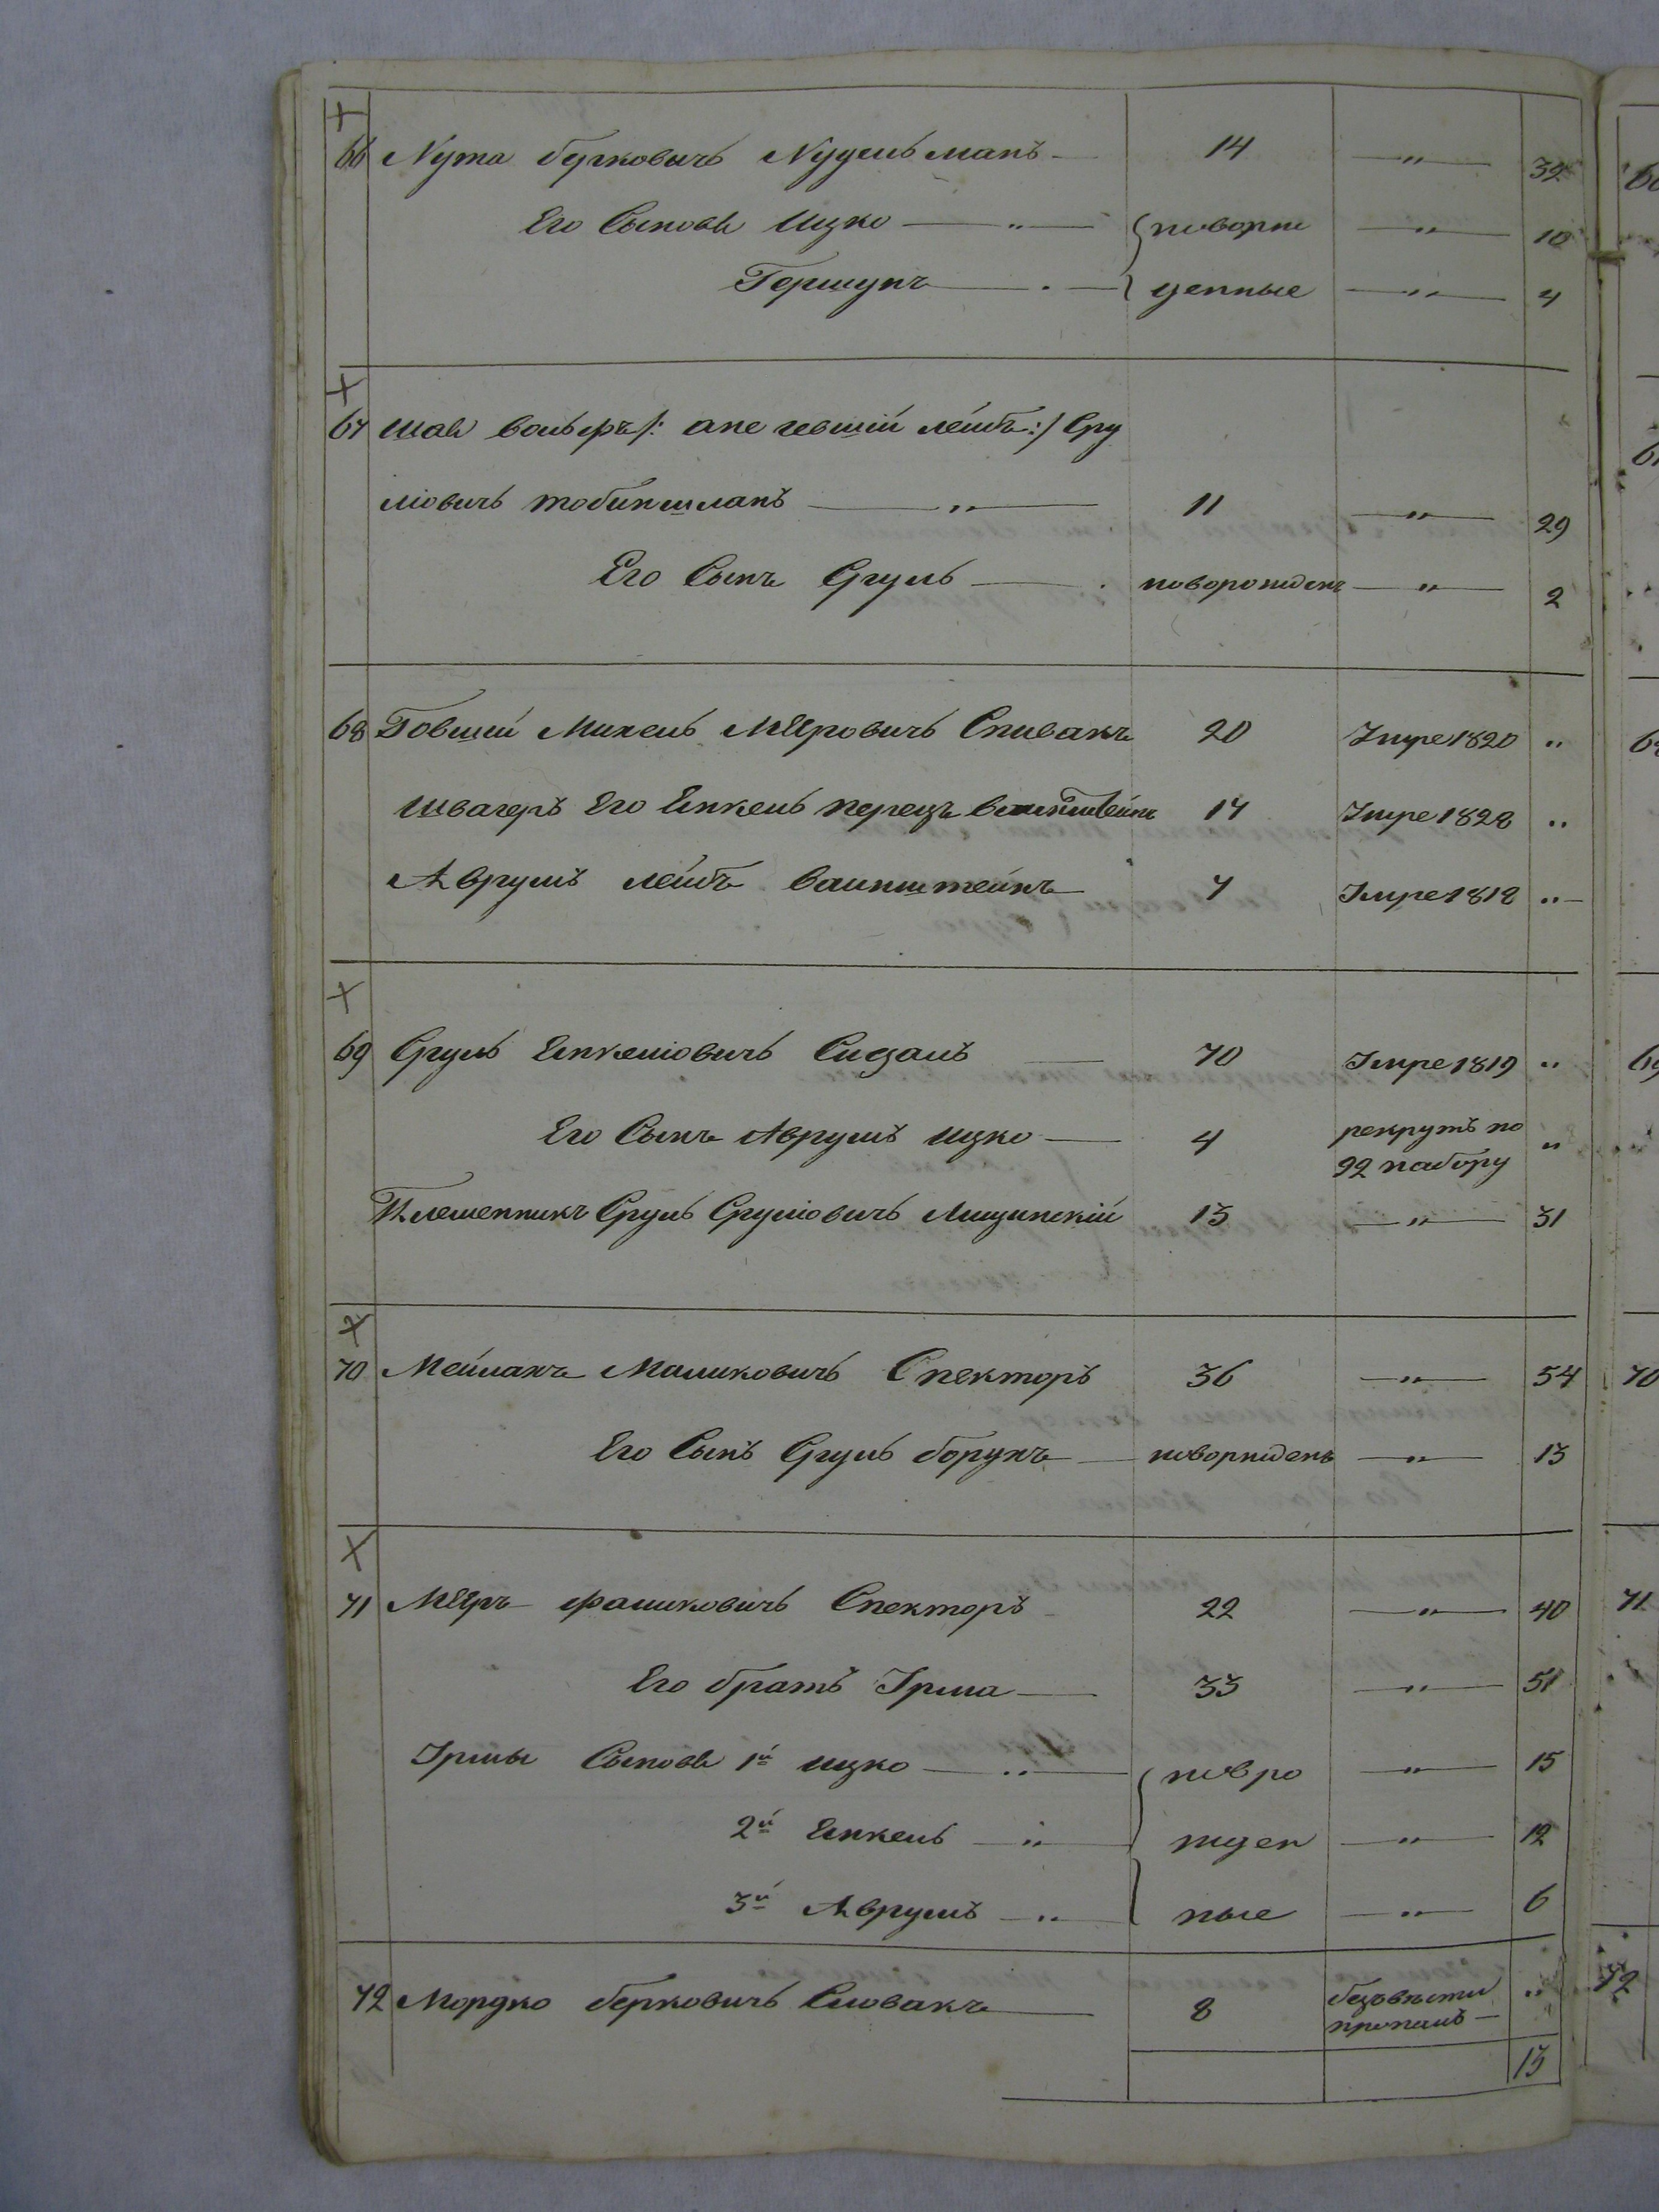 66 Нута Берковичъ Нудельманъ — 14 — " — 32
Его Сыновья Ицко — " — новорож — " — 10
Гершунъ — денные — " — 4
67 Шая Вольфъ /: а не Іевшій Лейбъ :/ Сру
ліовичъ Тобиншланъ — " — 11 — " — 29
Его Сынъ Сруль — новорожденъ — " — 2
68 Говшій Михель Мѣеровичъ Спивакъ 20 Умре 1820 "
Швагеръ Его Янкель Перецъ Ваинштейнъ 14 Умре 1828 "
Аврумъ Лейбъ Ваинштейнъ 7 Умре 1818 "
69 Сруль Янкеліовичъ Сидаль — 70 Умре 1819 "
Его Сынъ Аврумъ Ицко — 4 рекрутъ по "
92 набору
Племенникъ Сруль Сруліовичъ Лищинскій 13 — " — 31
70 Мейлахъ Маликовичъ Спекторъ 36 — " — 54 70
Его Сынъ Сруль Борухъ — новорожденъ — " — 13
71 Мѣеръ Фаликовичъ Спекторъ 22 — " — 40 71
Его братъ Ірма — 33 — " — 51
Ірмы Сыновья 1й Ицко — " — новоро — " — 15
2й Янкель — " — жден — " — 12
3й Аврумъ — " — ные — " — 6
72 Мордко Берковичъ Словакъ — 8 безъ вѣсти " 72
пропалъ —
13